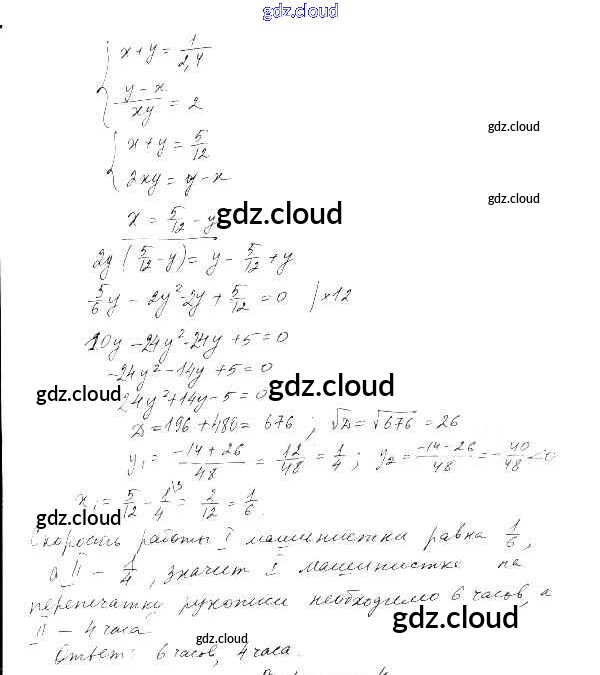 gdz.cloud
x + y = 1/2,4
(y - x)/xy = 2
gdz.cloud
x + y = 5/12
2xy = y - x
gdz.cloud
x = 5/12 - y
gdz.cloud
2y (5/12 - y) = y - 5/12 + y
5/6 y - 2y² - 2y + 5/12 = 0 / ×12
10y - 24y² - 24y + 5 = 0
-24y² - 14y + 5 = 0
gdz.cloud
24y² + 14y - 5 = 0
gdz.cloud
D = 196 + 480 = 676 ; √D = √676 = 26
y₁ = (-14 + 26)/48 = 12/48 = 1/4 ; y₂ = (-14 - 26)/48 = -40/48 < 0
x₁ = 5/12 - 1/4 \3 = 2/12 = 1/6.
gdz.cloud
Скорость работы I машинистки равна 1/6,
а II - 1/4, значит I машинистке на
перепечатку рукописи необходимо 6 часов, а
II - 4 часа.
gdz.cloud
gdz.cloud
Ответ: 6 часов, 4 часа.